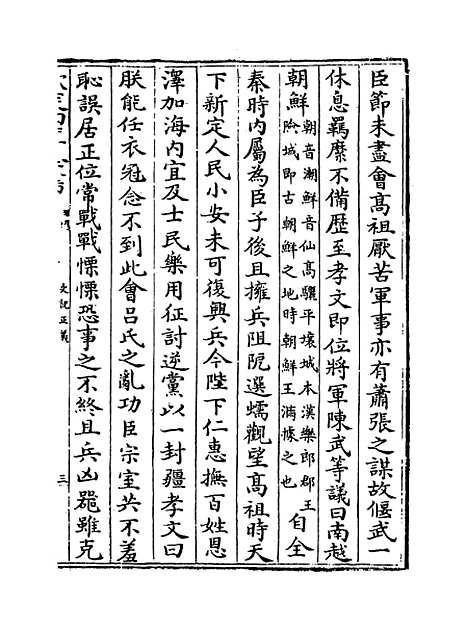 臣節未盡會髙祖厭苦軍事亦有蕭張之謀故偃武一
休息羈縻不備歴至孝文即位將軍陳武等議曰南越
朝鮮朝音潮鮮音仙髙驪平壤城本漢樂郎郡王
險城即古朝鮮之地時朝鮮王滿據之也自全
秦時内屬為臣子後且擁兵阻阨選蠕觀望髙祖時天
下新定人民小安未可復興兵今陛下仁惠撫百姓恩
澤加海内宜及士民樂用征討逆黨以一封疆孝文曰
朕能任衣冠念不到此會吕氏之亂功臣宗室共不羞
恥誤居正位常戰戰慄慄恐事之不終且兵凶噐雖克
史記正義
三